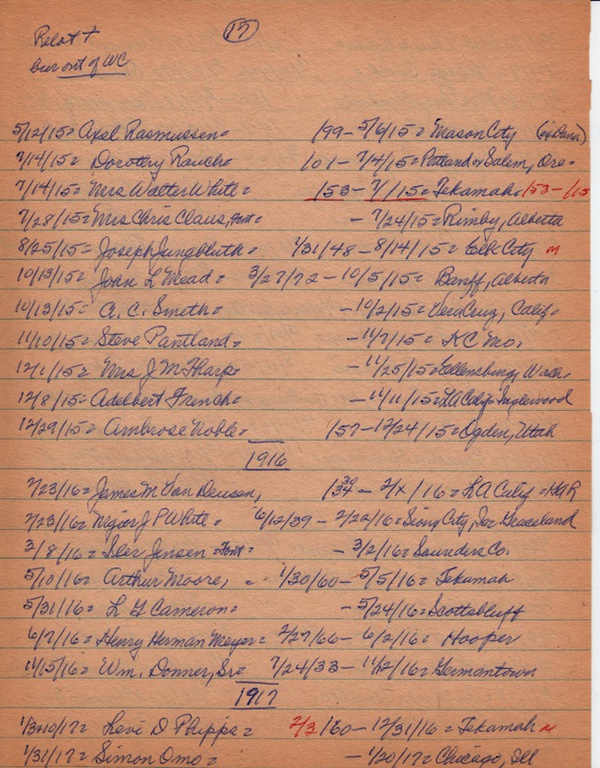 17
Relat +
bur out of WC
5/12/15= Axel Rasmussen= 199 - 5/6/15= Mason City
7/14/15= Dorothy Rauch= 101 - 7/4/15= Portland or Salem, Ore=
7/14/15= Mrs Walter White= 153 - 7/1/15= Tekamah= 153-/15
7/28/15= Mrs Chris Claus, Font= - 7/24/15= Rimby, Alberta
8/25/15= Joseph Jungbluth= 1/31/48 - 8/14/15= Elk City M
10/13/15= John L Mead= 3/27/72 - 10/5/15= Banff, Alberta
10/13/15= A. C. Smith= - 10/2/15= Calif=
11/10/15= Steve Pantland= - 11/7/15= KC Mo,
12/1/15= Mrs J M Tharp= - 11/25/15= Ellensburg, Wash=
12/8/15= Adelbert French= - 11/11/15= LA Calif= Inglewood
12/29/15= Ambrose Noble= 157 - 12/24/15= Ogden, Utah
1916
2/23/16= James M Van Deusen, 1834 30 - 2/x/16= LA Calif=
2/23/16= J P White= 6/12/39 - 2/22/16= Sioux City, Ia= Graceland
3/8/16= Iler Jensen= Font= - 3/2/16= Saunders Co.
5/10/16= Arthur Moore, = 1/30/60 - 5/5/16= Tekamah
5/31/16= L G Cameron= - 5/24/16= Scottsbluff
6/7/16= Henry Herman Meyer= 2/27/66 - 6/2/16= Hooper
11/15/16= Wm. Donner, Sr= 7/24/33 - 11/12/16= Germantown
1917
1/3+10/17= Levi D Phipps= 2/3/60 - 12/31/16= Tekamah M
1/31/17= Simon Omo= - 1/20/17= Chicago, Ill